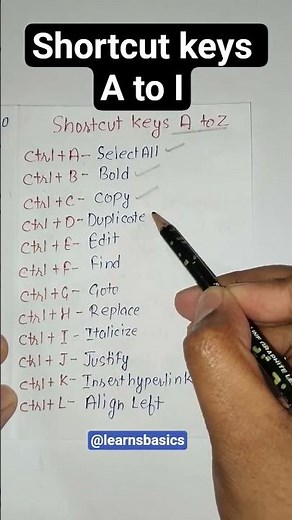 Shortcut keys
A to I
Shostcut keys A to Z
Ctrl+A- Select All
Ctrl + B - Bold
Ctrl + C - Copy
Ctrl + D- Duplicate
Ctrl + E- Edit
Ctrl + F- Find
Ctrl+G- Goto
Ctrl + H - Replace
Ctrl + I - Italicize
Ctrl + J- Justify
Ctrl + K- Insert hyperlink
Ctrl + L- Align Left
@learnsbasics